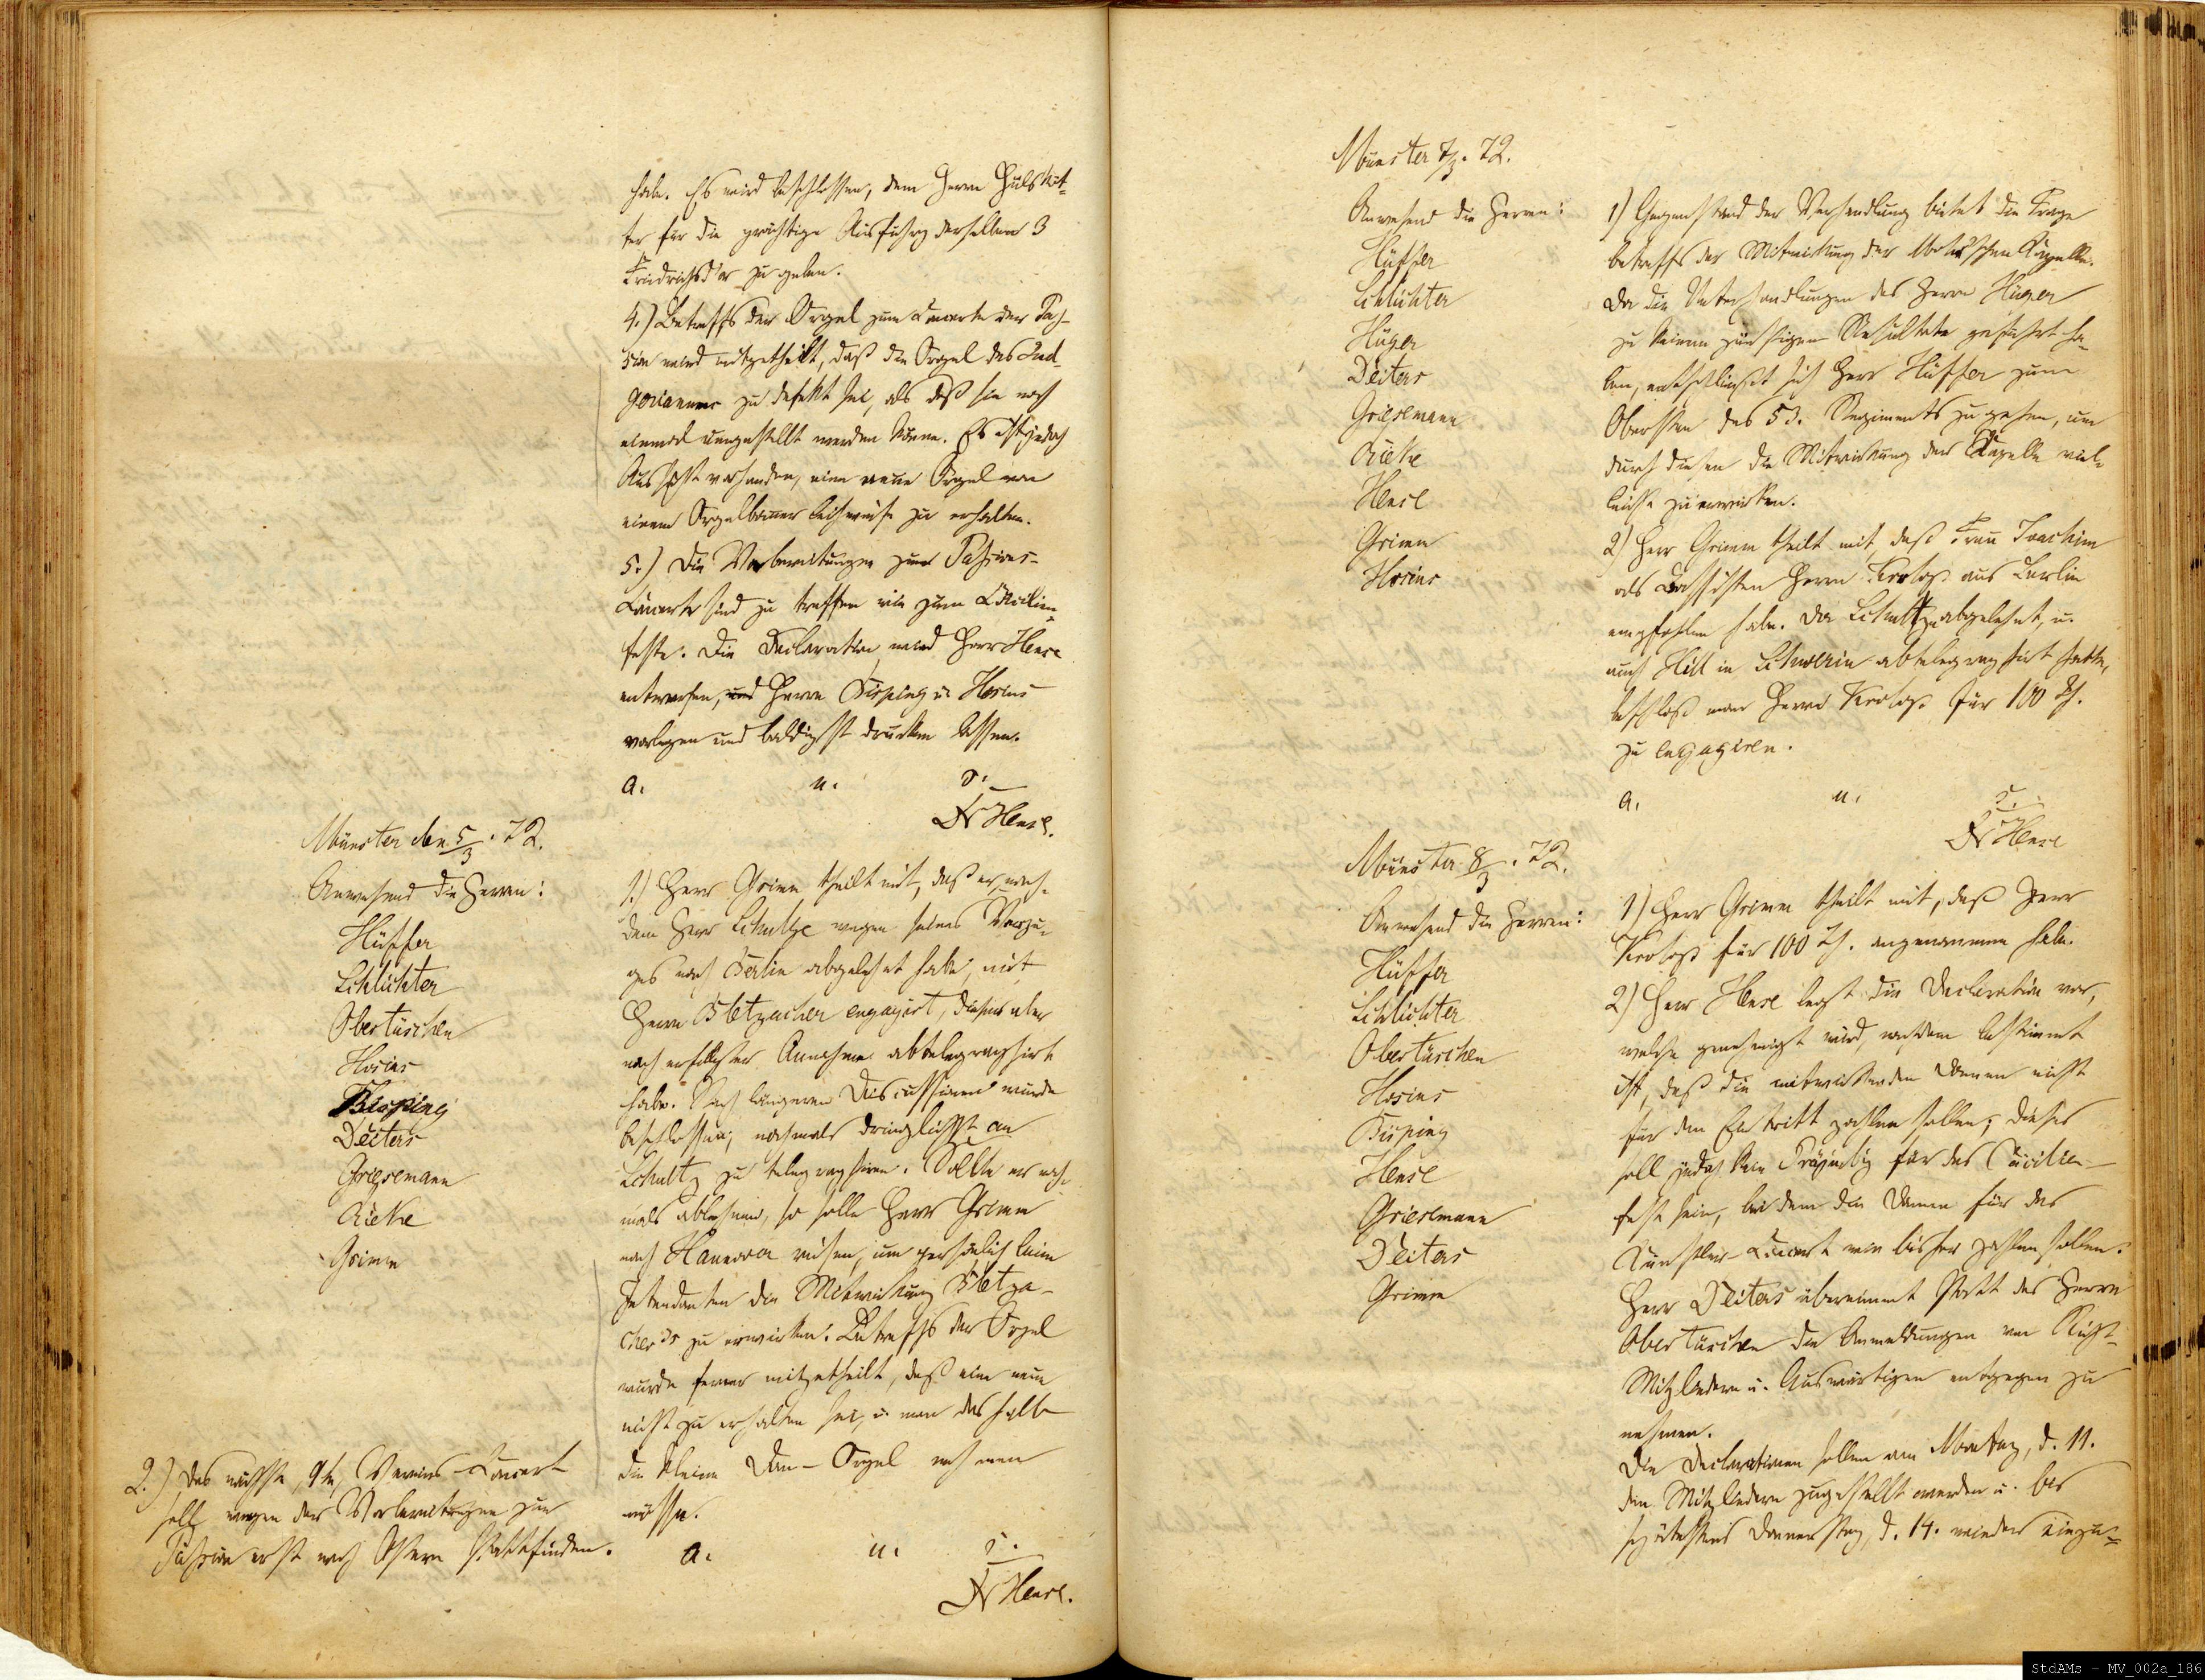 habe. Es wird beschlossen, dem Herrn Hülsköt-
ter für die prächtige Ausführg derselben 3
Friedrichsd'or zu geben.
4.) Betreffs der Orgel zum Concerte der Pas-
sion wird mitgetheilt, daß die Orgel des Lud-
gerianums zu defekt sei, als daß sie noch
einmal umgestellt werden könne. Es ist jedoch
Aussicht vorhanden, eine neue Orgel von
einem Orgelbauer leihweise zu erhalten.
5.) Die Vorbereitungen zum Passions-
Concerte sind zu treffen wie zum Cäcilien-
feste. Die Declaration wird Herr Hense
entwerfen, und Herrn Bisping u. Hosius
vorlegen und baldigst drucken lassen.
a. u. s.
Dr Hense.
Münster den 5/3. 72.
Anwesend die Herren:
Hüffer
Schlichter
Obertüschen
Hosius
Bisping
Deiters
Griesemann
Rieke
Grimm
1.) Herr Grimm theilt mit, daß er, nach-
dem Herr Schultze wegen seines Verzu-
ges nach Berlin abgelehnt habe, mit
Herrn Bletzacher engagirt, dieser aber
nach erfolgter Annahme abtelegraphirt
habe. Nach längeren Discussionen wurde
beschlossen, nochmals dringlichst an
Schultz zu telegraphiren. Sollte er noch-
mals ablehnen, so solle Herr Grimm
nach Hannover reisen, um persönlich beim
Intendanten die Mitwirkung Bletza-
cher's zu erwirken. Betreffs der Orgel
wurde ferner mitgetheilt, daß eine neue
nicht zu erhalten sei, u. man deshalb
die kleine Dom-Orgel nehmen
müsse.
2.) Das nächste, 9te, Vereins-Concert
soll wegen der Vorbereitungen zur
Passion erst nach Ostern stattfinden.
a. u. s.
Dr Hense.
Münster 7/3. 72.
Anwesend die Herren:
Hüffer
Schlichter
Hüger
Deiters
Griesemann
Rieke
Hense
Grimm
Hosius
1) Gegenstand der Verhandlung bietet die Frage
betreffs der Mitwirkung der Kapelle.
Da die Unterhandlungen des Herrn Hüger
zu keinem günstigen Resultate geführt ha-
ben, entschließt sich Herr Hüffer zum
Obersten des 53. Regiments zu gehen, um
durch diesen die Mitwirkung der Kapelle viel-
leicht zu erwirken.
2) Herr Grimm theilt mit, daß Frau Joachim
als Bassisten Herrn Krolop aus Berlin
empfohlen habe. Da Schultze abgelehnt, u.
auch Hill in Schwerin abtelegraphirt hatte,
beschloß man Herrn Krolop für 100 Th.
zu engagiren.
a. u. s.
Dr Hense
Münster 8/3. 72.
Anwesend die Herren:
Hüffer
Schlichter
Obertüschen
Hosius
Bisping
Hense
Griesemann
Deiters
Grimm
1) Herr Grimm theilt mit, daß Herr
Krolop für 100 Th. angenommen habe.
2) Herr Hense legt die Declaration vor,
welche genehmigt wird, nachdem bestimmt
ist, daß die mitwirkenden Damen nicht
für den Eintritt zahlen sollen; dieses
soll jedoch kein Präjudiz für das Cäcilien-
fest sein, bei dem die Damen für das
Künstler-Concert wie bisher zahlen sollen.
Herr Deiters übernimmt statt des Herrn
Obertüschen die Anmeldungen von Nicht-
Mitgliedern u. Auswärtigen entgegen zu
nehmen.
Die Declarationen sollen am Montag, d. 11.
den Mitgliedern zugestellt werden u. bis
spätestens Donnerstag, d. 14. wieder einge-
StdAMs - MV_002a_186